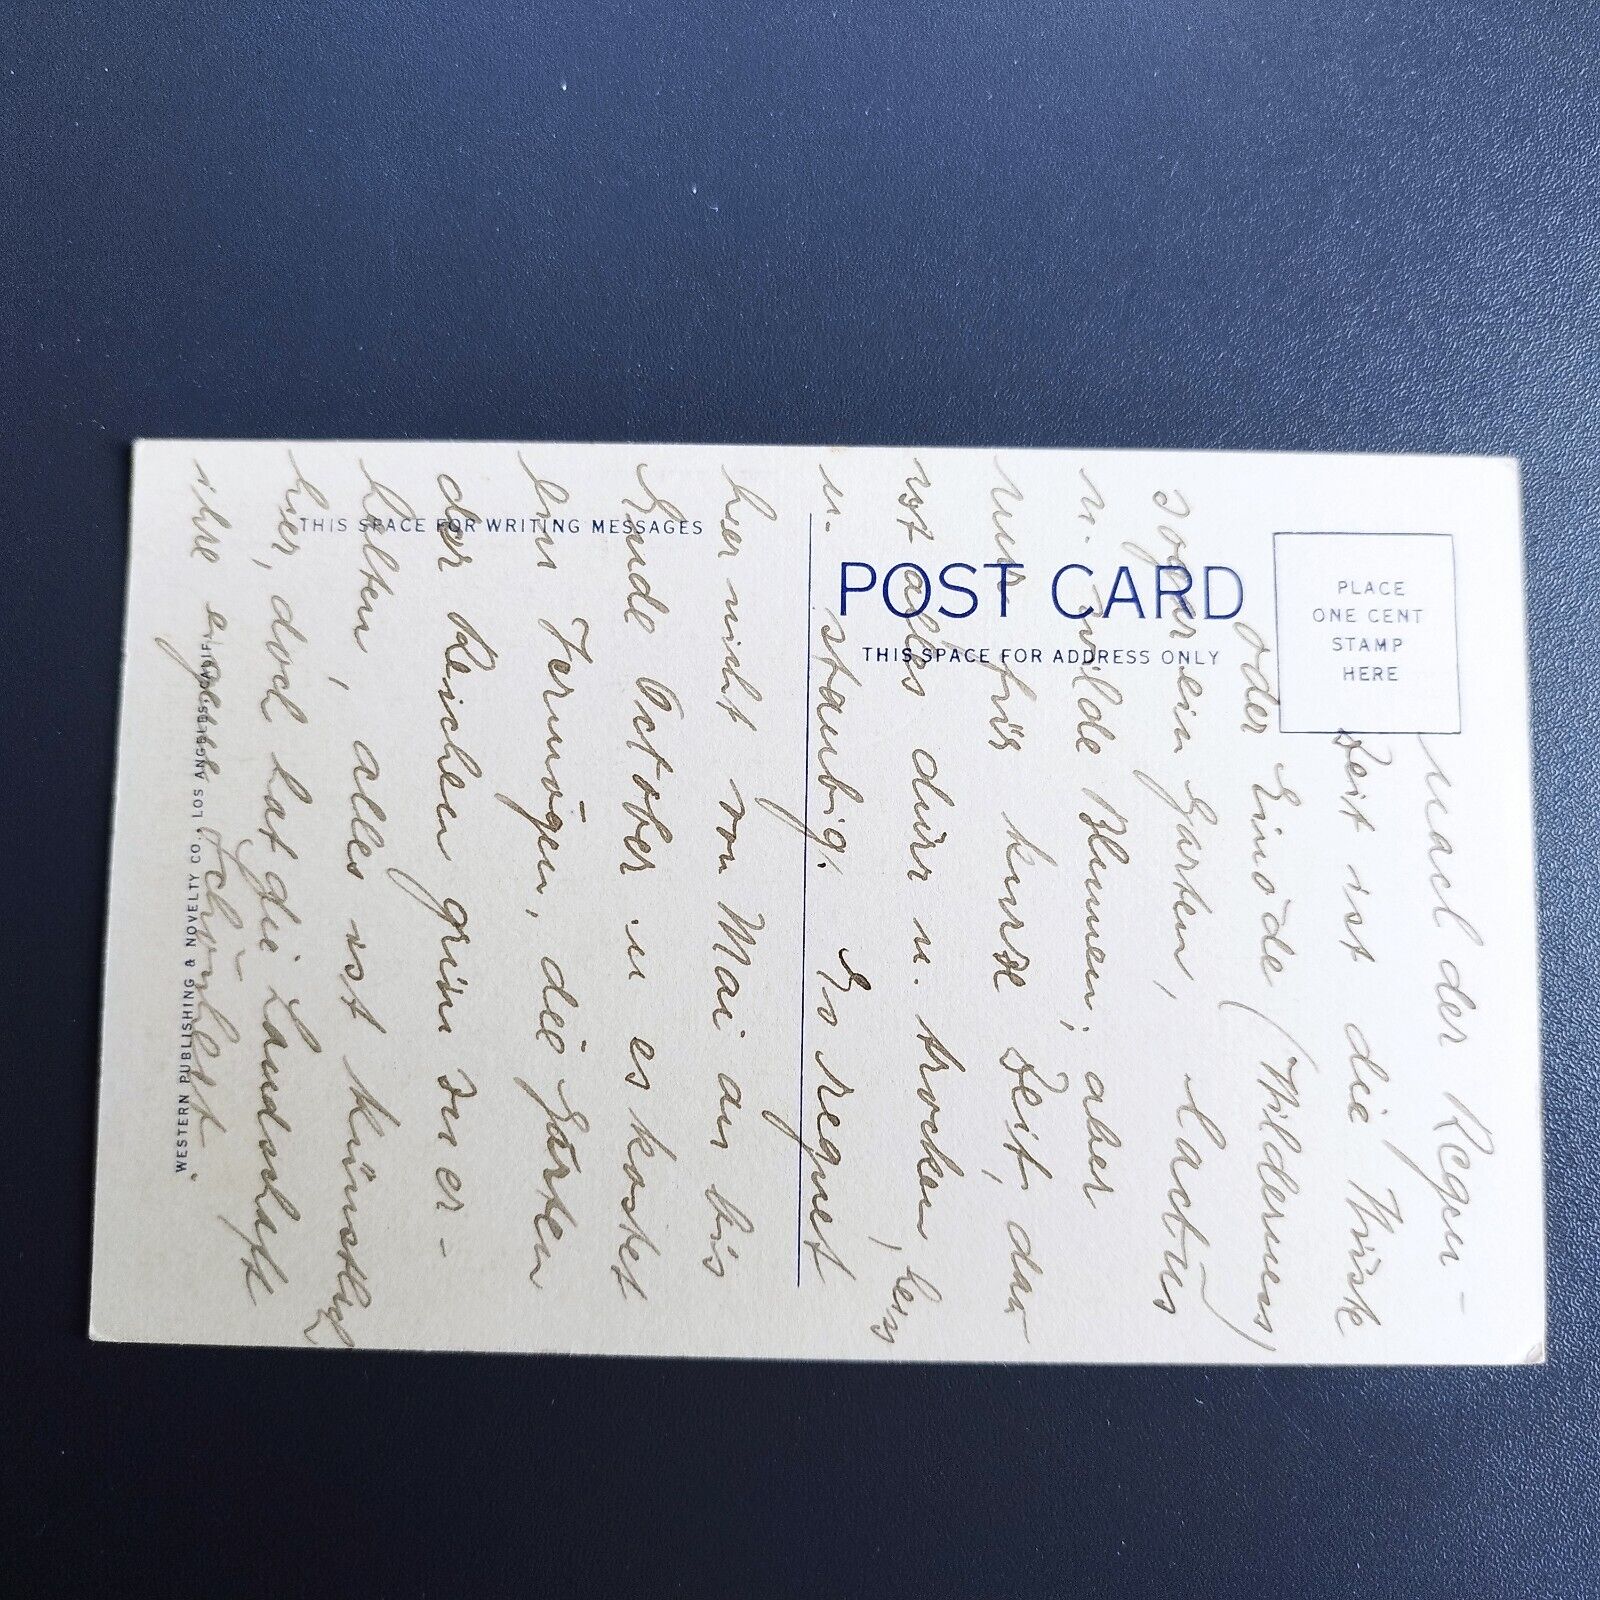 Nach der Regen-
Zeit ist die Wüste
oder Einöde (Wilderness)
sogar ein Garten, Cactus
u. wilde Blumen, aber
nur für kurze Zeit, dan
ist alles dürr u. trocken, heis
u. staubig. Es regnet
hier nicht von Mai an bis
Ende October u es kostet
ein Vermögen, die Gärten
der Reichen grün zu er-
halten, alles ist künstlich
hier, doch hat die Landschaft
ihre eigene Schönheit.
THIS SPACE FOR WRITING MESSAGES
POST CARD
THIS SPACE FOR ADDRESS ONLY
PLACE
ONE CENT
STAMP
HERE
WESTERN PUBLISHING & NOVELTY CO., LOS ANGELES, CALIF.